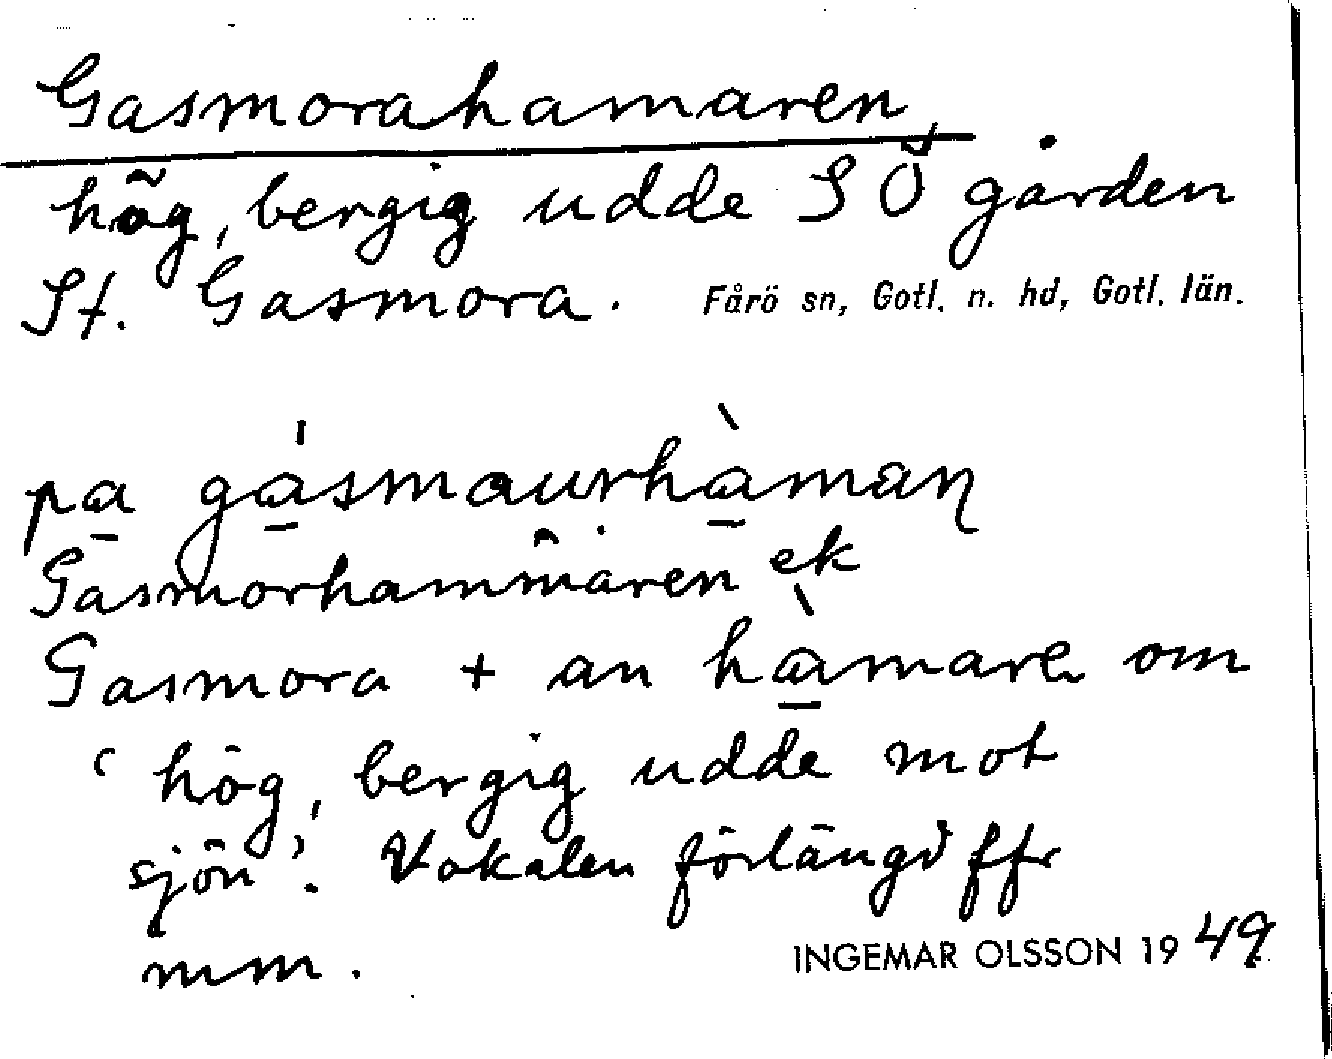 Gasmorahamaren,
hög, bergig udde SÖ gården
St. Gasmora. Fårö sn, Gotl. n. hd, Gotl. län.
pa gásmaurhàman
Gasmorhammaren ek
Gasmora + an hàmare om
‘hög, bergig udde mot
sjön’. Vokalen förlängd ffr
mm.
INGEMAR OLSSON 1949